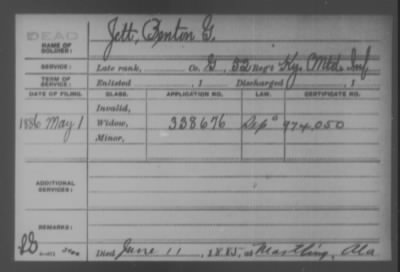 DEAD
NAME OF SOLDIER:
Jett, Benton G.
SERVICE:
Late rank, Co. G, 52 Reg't Ky. Mtd. Inf
TERM OF SERVICE:
Enlisted , 1 Discharged , 1
DATE OF FILING. CLASS. APPLICATION NO. LAW. CERTIFICATE NO.
Invalid,
1886 May 1 Widow, 338676 974,050
Minor,
ADDITIONAL SERVICES:
REMARKS:
Died June 11, 1885, at Ala